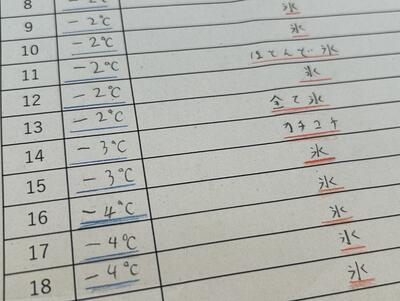 8 -2℃ 氷
9 -2℃ 氷
10 -2℃ ほとんど氷
11 -2℃ 氷
12 -2℃ 全て氷
13 -2℃ カチコチ
14 -3℃ 氷
15 -3℃ 氷
16 -4℃ 氷
17 -4℃ 氷
18 -4℃ 氷